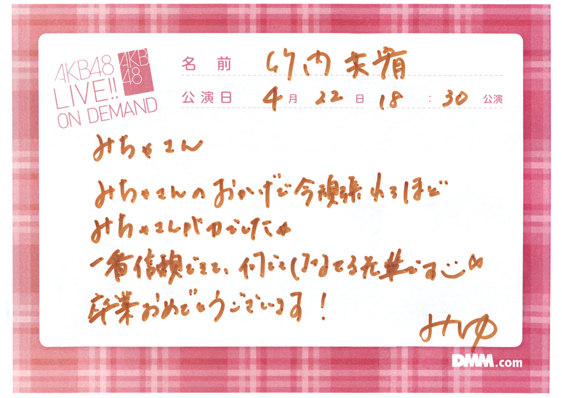 AKB48
LIVE!!
ON DEMAND
AKB
48
名前 竹内美宥
公演日 4月22日18:30公演
みちゃさん
みちゃさんのおかげで今頑張れるほど
みちゃさんが力でした
一番信頼できて、何でも話せる先輩です
卒業おめでとうございます!
みゆ
DMM.com